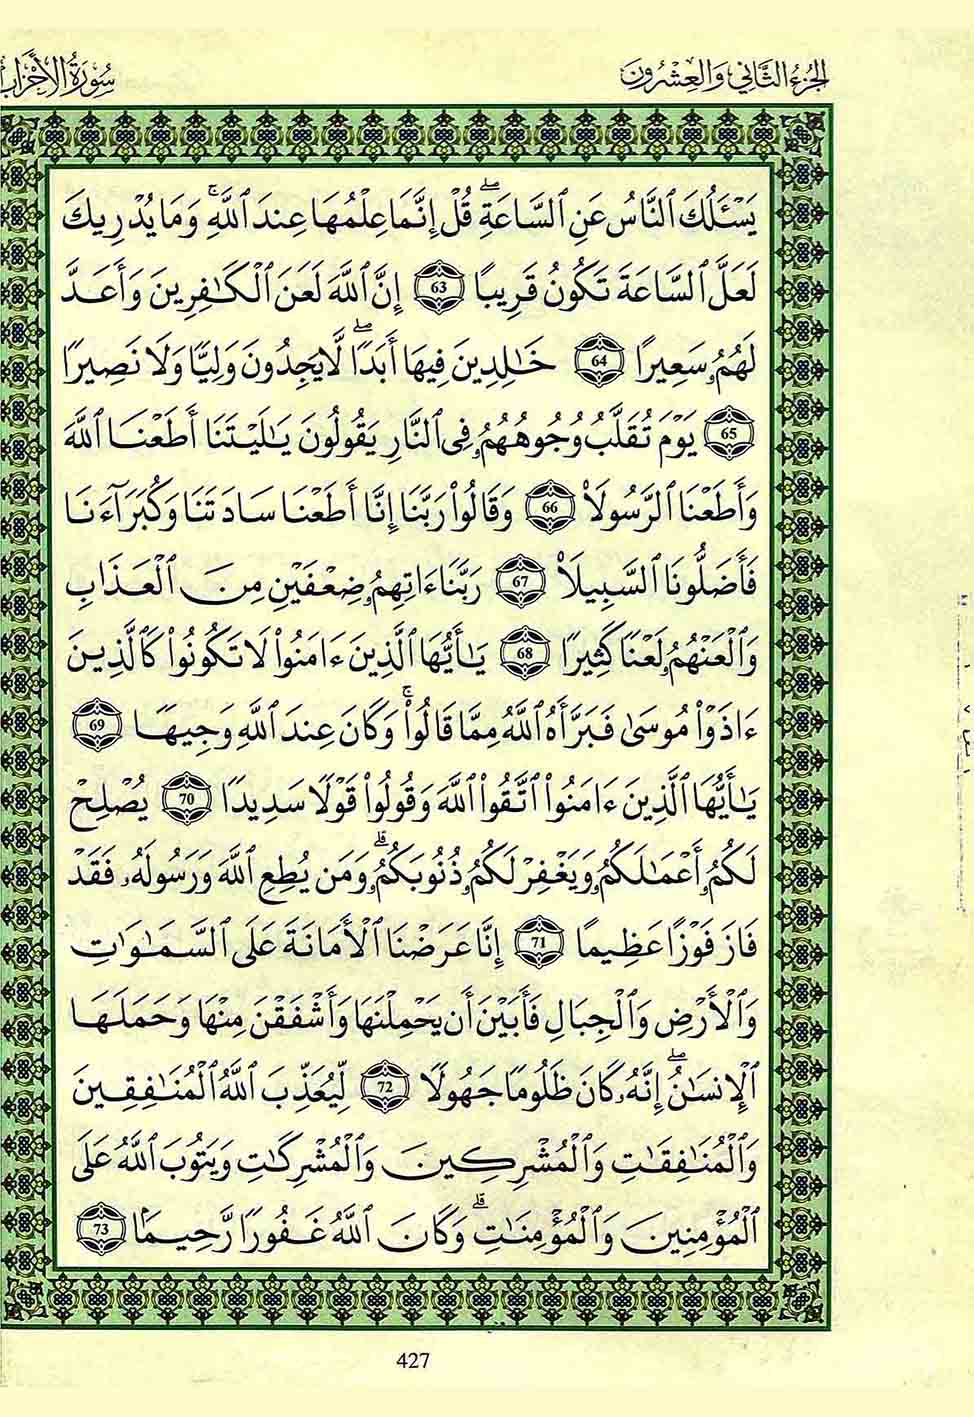 الجزء الثاني والعشرون
سورة الأحزاب
يَسْـَٔلُكَ ٱلنَّاسُ عَنِ ٱلسَّاعَةِۖ قُلْ إِنَّمَا عِلْمُهَا عِندَ ٱللَّهِۚ وَمَا يُدْرِيكَ
لَعَلَّ ٱلسَّاعَةَ تَكُونُ قَرِيبًا 63 إِنَّ ٱللَّهَ لَعَنَ ٱلْكَـٰفِرِينَ وَأَعَدَّ
لَهُمُۥ سَعِيرًا 64 خَـٰلِدِينَ فِيهَا أَبَدًاۖ لَّا يَجِدُونَ وَلِيًّا وَلَا نَصِيرًا
65 يَوْمَ تُقَلَّبُ وُجُوهُهُمُۥ فِى ٱلنَّارِ يَقُولُونَ يَـٰلَيْتَنَا أَطَعْنَا ٱللَّهَ
وَأَطَعْنَا ٱلرَّسُولَا۠ 66 وَقَالُوا۟ رَبَّنَا إِنَّا أَطَعْنَا سَادَتَنَا وَكُبَرَآءَنَا
فَأَضَلُّونَا ٱلسَّبِيلَا۠ 67 رَبَّنَا ءَاتِهِمُۥ ضِعْفَيْنِ مِنَ ٱلْعَذَابِ
وَٱلْعَنْهُمُۥ لَعْنًا كَثِيرًا 68 يَـٰٓأَيُّهَا ٱلَّذِينَ ءَامَنُوا۟ لَا تَكُونُوا۟ كَٱلَّذِينَ
ءَاذَوْا۟ مُوسَىٰ فَبَرَّأَهُ ٱللَّهُ مِمَّا قَالُوا۟ۚ وَكَانَ عِندَ ٱللَّهِ وَجِيهًا 69
يَـٰٓأَيُّهَا ٱلَّذِينَ ءَامَنُوا۟ ٱتَّقُوا۟ ٱللَّهَ وَقُولُوا۟ قَوْلًا سَدِيدًا 70 يُصْلِحْ
لَكُمُۥ أَعْمَـٰلَكُمُۥ وَيَغْفِرْ لَكُمُۥ ذُنُوبَكُمُۥۗ وَمَن يُطِعِ ٱللَّهَ وَرَسُولَهُۥ فَقَدْ
فَازَ فَوْزًا عَظِيمًا 71 إِنَّا عَرَضْنَا ٱلْأَمَانَةَ عَلَى ٱلسَّمَـٰوَٰتِ
وَٱلْأَرْضِ وَٱلْجِبَالِ فَأَبَيْنَ أَن يَحْمِلْنَهَا وَأَشْفَقْنَ مِنْهَا وَحَمَلَهَا
ٱلْإِنسَـٰنُۖ إِنَّهُۥ كَانَ ظَلُومًا جَهُولًا 72 لِّيُعَذِّبَ ٱللَّهُ ٱلْمُنَـٰفِقِينَ
وَٱلْمُنَـٰفِقَـٰتِ وَٱلْمُشْرِكِينَ وَٱلْمُشْرِكَـٰتِ وَيَتُوبَ ٱللَّهُ عَلَى
ٱلْمُؤْمِنِينَ وَٱلْمُؤْمِنَـٰتِۗ وَكَانَ ٱللَّهُ غَفُورًا رَّحِيمًا 73
427